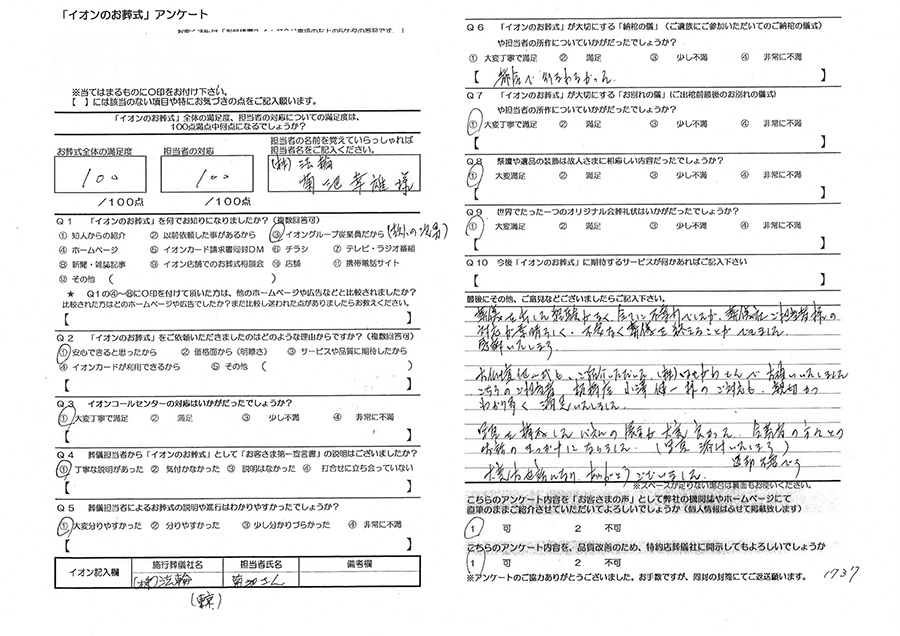 「イオンのお葬式」アンケート
※当てはまるものに○印をお付け下さい。
【 】には該当のない項目や特にお気づきの点をご記入願います。
「イオンのお葬式」全体の満足度、担当者の対応についての満足度は、
100点満点中何点になるでしょうか?
お葬式全体の満足度
100
/100点
担当者の対応
100
/100点
担当者の名前を覚えていらっしゃれば
担当者名をご記入ください。
(株)法輪
菊池幸雄様
Q1 「イオンのお葬式」を何でお知りになりましたか?(複数回答可)
① 知人からの紹介 ② 以前依頼した事があるから ③ イオングループ従業員だから
④ ホームページ ⑤ イオンカード請求書同封DM ⑥ チラシ ⑦ テレビ・ラジオ番組
⑧ 新聞・雑誌記事 ⑨ イオン店舗でのお葬式相談会 ⑩ 店舗 ⑪ 携帯電話サイト
⑫ その他 ( )
★ Q1の④~⑧に○印を付けて頂いた方は、他のホームページや広告などと比較されましたか?
比較された方はどのホームページや広告でしたか?また比較し迷われた点がありましたらお教えください。
【 】
Q2 「イオンのお葬式」をご依頼いただきましたのはどのような理由からですか?(複数回答可)
① 安心できると思ったから ② 価格面から(明瞭さ) ③ サービスや品質に期待したから
④ イオンカードが利用できるから ⑤ その他 ( )
【 】
Q3 イオンコールセンターの対応はいかがだったでしょうか?
① 大変丁寧で満足 ② 満足 ③ 少し不満 ④ 非常に不満
【 】
Q4 葬儀担当者から「イオンのお葬式」として「お客さま第一宣言書」の説明はございましたか?
① 丁寧な説明があった ② 気付かなかった ③ 説明はなかった ④ 打合せに立ち会っていない
【 】
Q5 葬儀担当者によるお葬式の説明や進行はわかりやすかったでしょうか?
① 大変分りやすかった ② 分りやすかった ③ 少し分りづらかった ④ 非常に不満
【 】
イオン記入欄 施行葬儀社名 担当者氏名 備考欄
(株)法輪 菊池さん
(東京)
Q6 「イオンのお葬式」が大切にする「納棺の儀」(ご遺族にご参加いただいてのご納棺の儀式)
や担当者の所作についていかがだったでしょうか?
① 大変丁寧で満足 ② 満足 ③ 少し不満 ④ 非常に不満
【 都合で 】
Q7 「イオンのお葬式」が大切にする「お別れの儀」(ご出棺前最後のお別れの儀式)
や担当者の所作についていかがだったでしょうか?
① 大変丁寧で満足 ② 満足 ③ 少し不満 ④ 非常に不満
【 】
Q8 祭壇や遺品の装飾は故人さまに相応しい内容だったでしょうか?
① 大変満足 ② 満足 ③ 少し不満 ④ 非常に不満
【 】
Q9 世界でたった一つのオリジナル会葬礼状はいかがだったでしょうか?
① 大変満足 ② 満足 ③ 少し不満 ④ 非常に不満
【 】
Q10 今後「イオンのお葬式」に期待するサービスが何かあればご記入下さい
【 】
最後にその他、ご意見などございましたらご記入下さい。
葬儀を出した経験がなく、全てに不案内でしたが、葬儀社ご担当者様の
対応が素晴らしく、不安なく葬儀を終えることができました。
感謝いたします。
お仏壇他一式も、ご紹介いただいた(株)はせがわさんでお願いいたしました
こちらのご担当者、板橋店 小澤健一様のご対応も、親切かつ
わかり易く 満足いたしました。
大変お世話になり、ありがとうございました。
※スペースが足りない場合は裏面もお使いください。
こちらのアンケート内容を「お客さまの声」として弊社の機関誌やホームページにて
直筆のままご紹介させていただいてよろしいでしょうか(個人情報はふせて掲載致します)
1 可 2 不可
こちらのアンケート内容を、品質改善のため、特約店葬儀社に開示してもよろしいでしょうか
1 可 2 不可
※アンケートのご協力ありがとうございました。お手数ですが、同封の封筒にてご返送願います。
1737